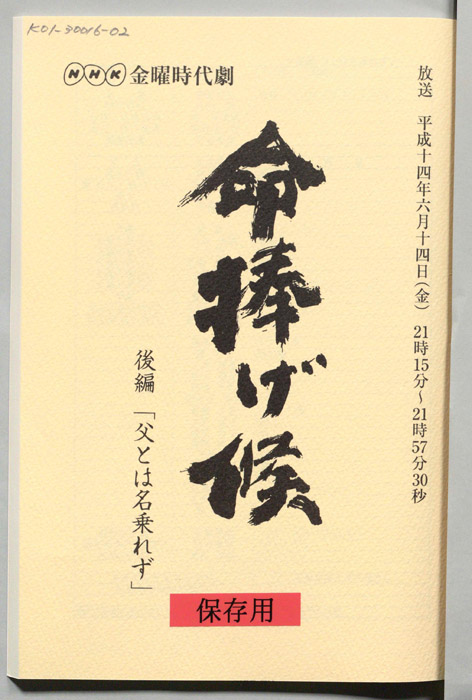 K01-30016-02
NHK金曜時代劇
放送　平成十四年六月十四日(金)　21時15分～21時57分30秒
命捧げ候
後編「父とは名乗れず」
保存用